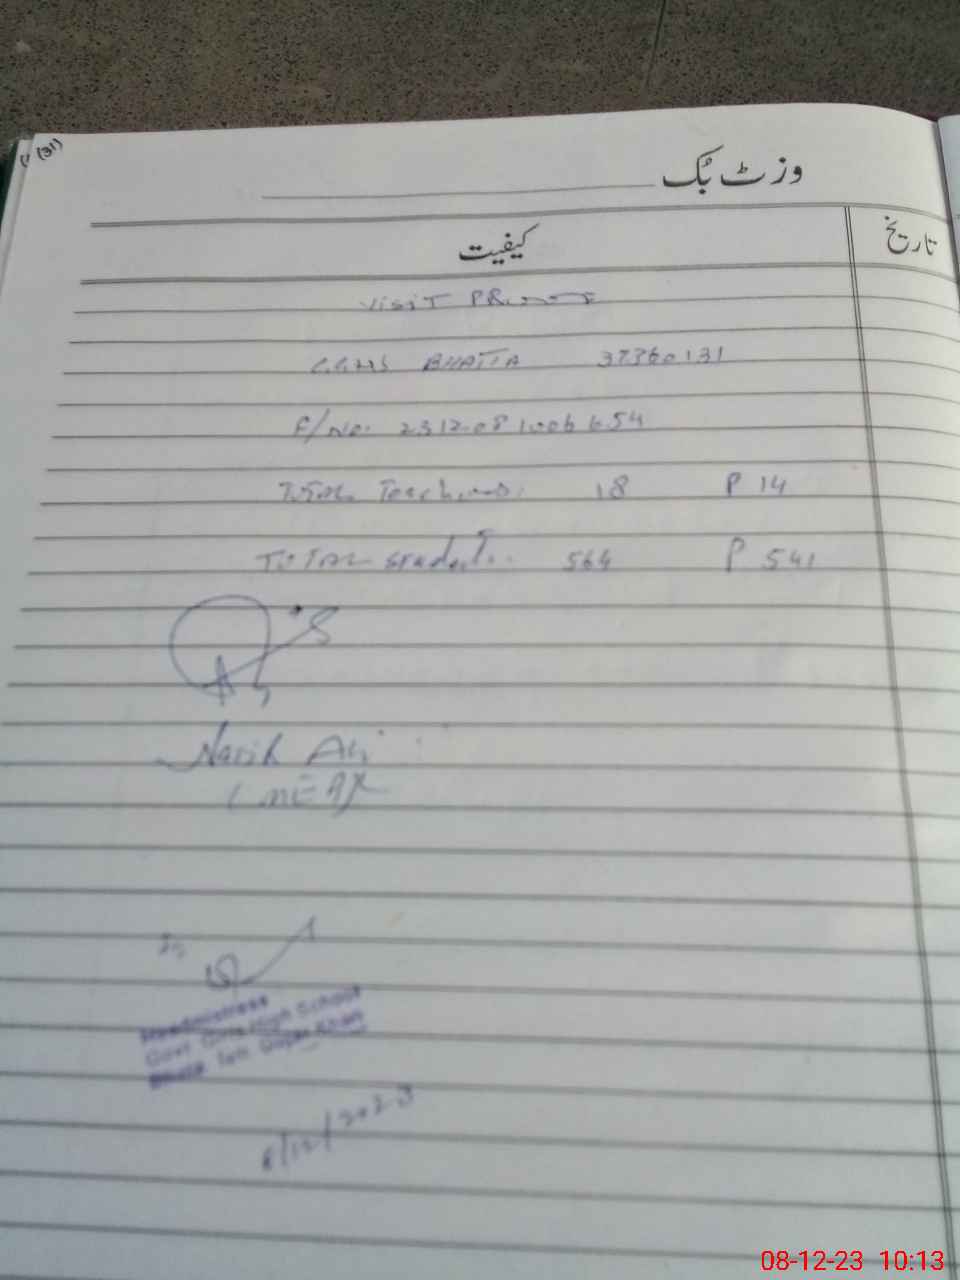 (31)
وزٹ بُک
تاریخ
کیفیت
VISIT PROOF
GGHS BHATTA 37360131
F/No. 2312081006654
TOTAL Teachers: 18 P 14
TOTAL Students. 564 P 541
Ali
(MEA)
Headmistress
Govt. Girls High School
Bhatta Teh. Gujar Khan
8/12/2023
08-12-23 10:13